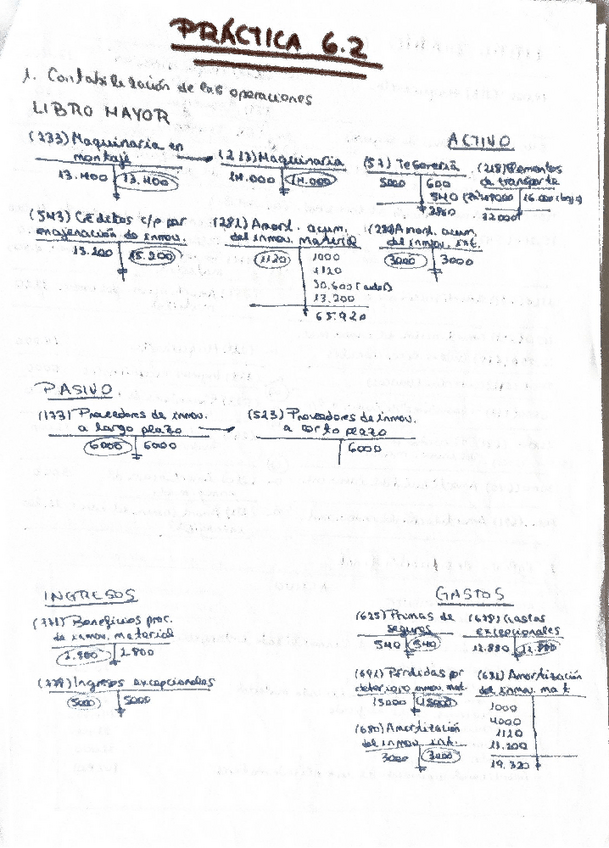 PRÁCTICA 6.2
1. Contabilización de las operaciones
LIBRO MAYOR
ACTIVO
(233) Maquinaria en
montaje
13.400 13.400
(213) Maquinaria
14.000 14.000
(57) Tesorería
5000 600
540
3860
(218) Elementos
de transporte
16.000 (baja)
32000
(543) Créditos c/p por
enajenación de inmov.
15.200 15.200
(281) Amort. acum.
del inmov. material
1120 1000
1120
30.600
13.200
65.920
(280) Amort. acum.
del inmov. int.
3000 3000
PASIVO
(173) Proveedores de inmov.
a largo plazo
6000 6000
(523) Proveedores de inmov.
a corto plazo
6000
INGRESOS
(771) Beneficios proc.
de inmov. material
2.800 2.800
(778) Ingresos excepcionales
5000 5000
GASTOS
(625) Primas de
seguros
540 540
(678) Gastos
excepcionales
12.880 12.880
(691) Pérdidas por
deterioro inmov. mat.
15000 15000
(681) Amortización
del inmov. mat
1000
4000
1120
13.200
19.320
(680) Amortización
del inmov. int.
3000 3000